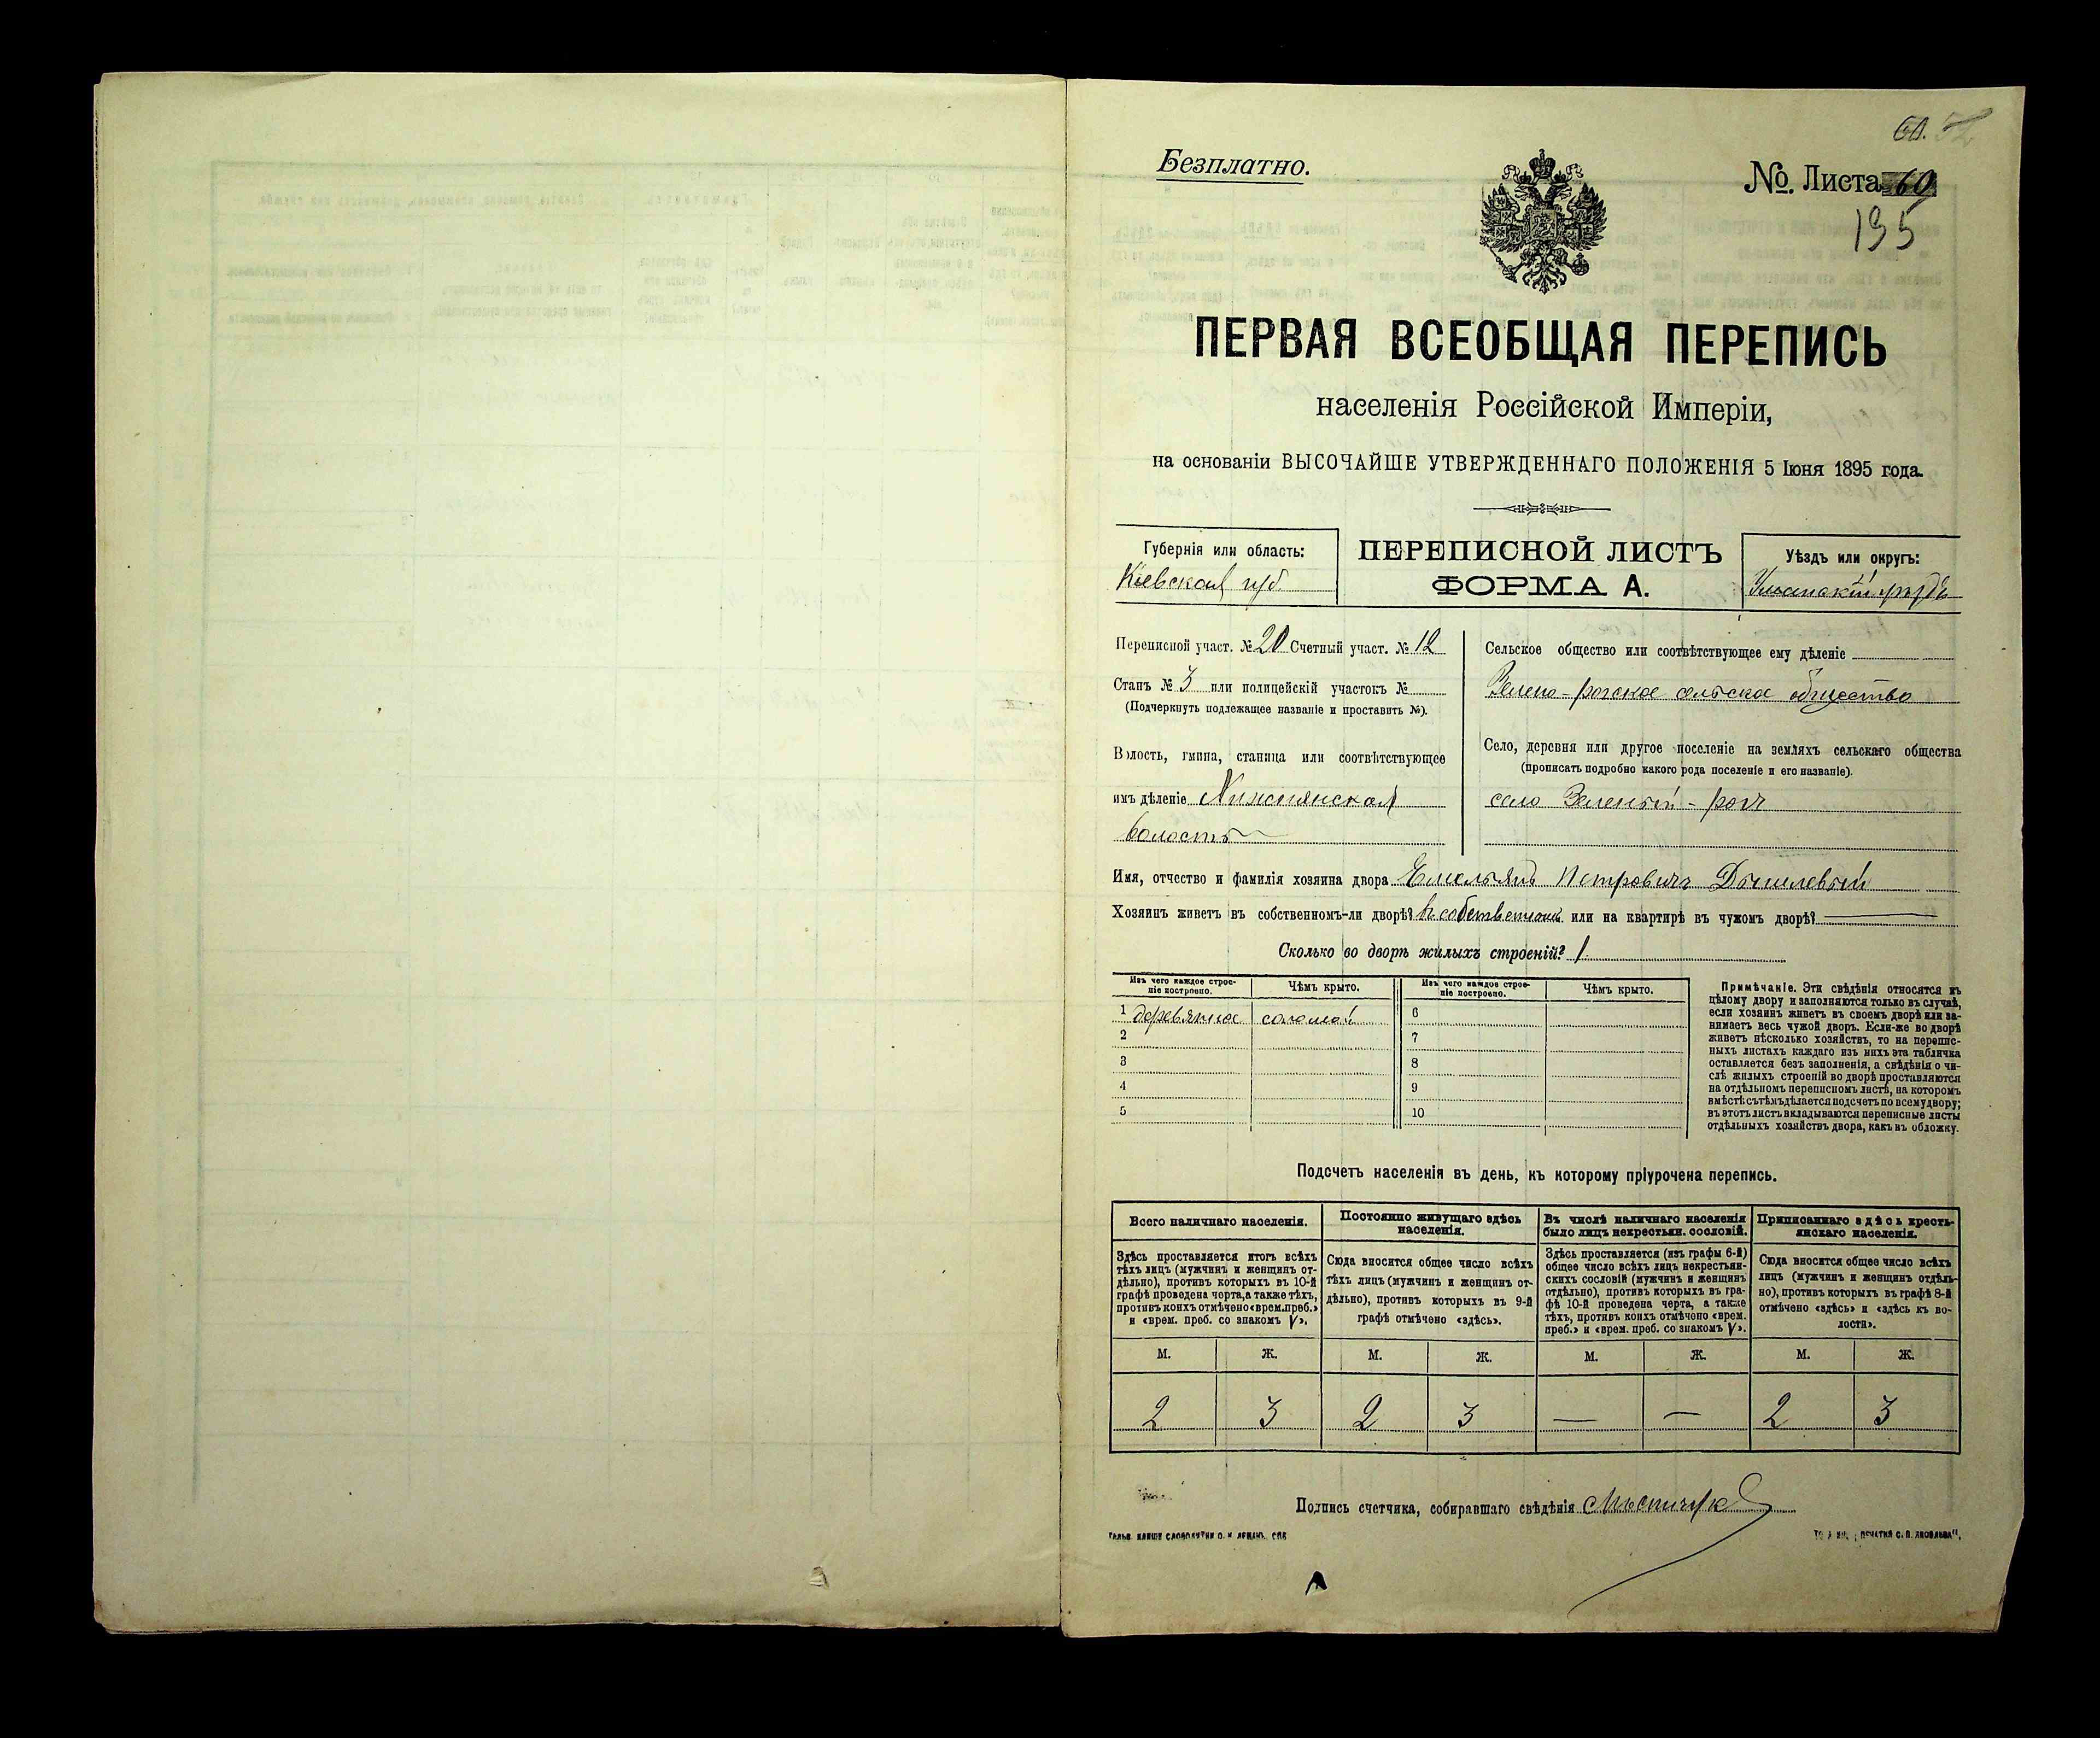 60.
Безплатно.
№. Листа 60
195
ПЕРВАЯ ВСЕОБЩАЯ ПЕРЕПИСЬ
населенія Россійской Имперіи,
на основаніи ВЫСОЧАЙШЕ УТВЕРЖДЕННАГО ПОЛОЖЕНІЯ 5 Іюня 1895 года.
Губернія или область:
Кіевская губ.
ПЕРЕПИСНОЙ ЛИСТЪ
ФОРМА А.
Уѣздъ или округъ:
Уманскій уѣздъ
Переписной участ. № 20 Счетный участ. № 12
Станъ № 3 или полицейскій участокъ №
(Подчеркнуть подлежащее названіе и проставить №).
Волость, гмина, станица или соотвѣтствующее
имъ дѣленіе
волость
Сельское общество или соотвѣтствующее ему дѣленіе
Зелено-рогское сельское общество
Село, деревня или другое поселеніе на земляхъ сельскаго общества
(прописать подробно какого рода поселеніе и его названіе).
село Зеленый-рогъ
Имя, отчество и фамилія хозяина двора Емельянъ Петровичъ
Хозяинъ живетъ въ собственномъ-ли дворѣ? въ собственномъ или на квартирѣ въ чужомъ дворѣ? —
Сколько во дворѣ жилыхъ строеній? 1.
Изъ чего каждое строе-
ніе построено.
Чѣмъ крыто.
Изъ чего каждое строе-
ніе построено.
Чѣмъ крыто.
1 деревянное соломой 6
2 7
3 8
4 9
5 10
Примѣчаніе. Эти свѣдѣнія относятся къ
цѣлому двору и заполняются только въ случаѣ,
если хозяинъ живетъ въ своемъ дворѣ или за-
нимаетъ весь чужой дворъ. Если-же во дворѣ
живетъ нѣсколько хозяйствъ, то на перепис-
ныхъ листахъ каждаго изъ нихъ эта табличка
оставляется безъ заполненія, а свѣдѣнія о чи-
слѣ жилыхъ строеній во дворѣ проставляются
на отдѣльномъ переписномъ листѣ, на которомъ
вмѣстѣ съ тѣмъ дѣлается подсчетъ по всему двору;
въ этотъ листъ вкладываются переписные листы
отдѣльныхъ хозяйствъ двора, какъ въ обложку.
Подсчетъ населенія въ день, къ которому пріурочена перепись.
Всего наличнаго населенія.
Здѣсь проставляется итогъ всѣхъ
тѣхъ лицъ (мужчинъ и женщинъ от-
дѣльно), противъ которыхъ въ 10-й
графѣ проведена черта, а также тѣхъ,
противъ коихъ отмѣчено «врем. преб.»
и «врем. преб. со знакомъ V».
Постоянно живущаго здѣсь
населенія.
Сюда вносится общее число всѣхъ
тѣхъ лицъ (мужчинъ и женщинъ от-
дѣльно), противъ которыхъ въ 9-й
графѣ отмѣчено «здѣсь».
Въ числѣ наличнаго населенія
было лицъ некрестьян. сословій.
Здѣсь проставляется (изъ графы 6-й)
общее число всѣхъ лицъ некрестьян-
скихъ сословій (мужчинъ и женщинъ
отдѣльно), противъ которыхъ въ гра-
фѣ 10-й проведена черта, а также
тѣхъ, противъ коихъ отмѣчено «врем.
преб.» и «врем. преб. со знакомъ V».
Приписаннаго здѣсь кресть-
янскаго населенія.
Сюда вносится общее число всѣхъ
лицъ (мужчинъ и женщинъ отдѣль-
но), противъ которыхъ въ графѣ 8-й
отмѣчено «здѣсь» и «здѣсь къ во-
лости».
М. Ж. М. Ж. М. Ж. М. Ж.
2 3 2 3 — — 2 3
Подпись счетчика, собиравшаго свѣдѣнія